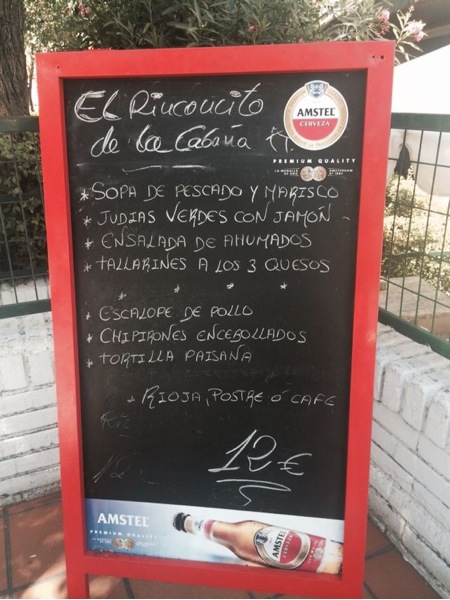 El Rinconcito
de La Cabaña
AMSTEL
CERVEZA
PREMIUM QUALITY
* SOPA DE PESCADO Y MARISCO
* JUDIAS VERDES CON JAMÓN
* ENSALADA DE AHUMADOS
* TALLARINES A LOS 3 QUESOS
* * * *
* ESCALOPE DE POLLO
* CHIPIRONES ENCEBOLLADOS
* TORTILLA PAISANA
* RIOJA, POSTRE Ó CAFE
12 €
AMSTEL
PREMIUM QUALITY
AMSTEL
CERVEZA